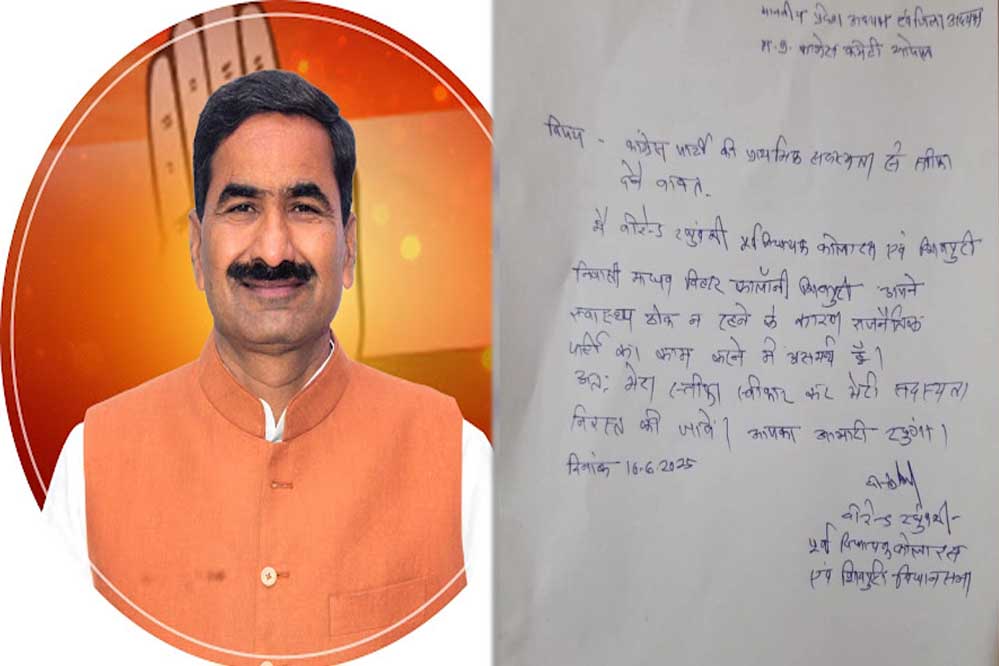 माननीय प्रदेश अध्यक्ष एवं जिला अध्यक्ष
म.प्र. कांग्रेस कमेटी भोपाल
विषय - कांग्रेस पार्टी की प्राथमिक सदस्यता से स्तीफा
देने बावत.
मैं वीरेन्द्र रघुवंशी पूर्व विधायक कोलारस एवं शिवपुरी
निवासी माधव विहार कॉलोनी शिवपुरी अपने
स्वास्थ्य ठीक न रहने के कारण राजनैतिक
पार्टी का काम करने में असमर्थ हूँ।
अतः मेरा स्तीफा स्वीकार कर मेरी सदस्यता
निरस्त की जावे। आपका आभारी रहूंगा।
दिनांक 16.6.2025
वीरेन्द्र रघुवंशी
पूर्व विधायक कोलारस
एवं शिवपुरी विधानसभा